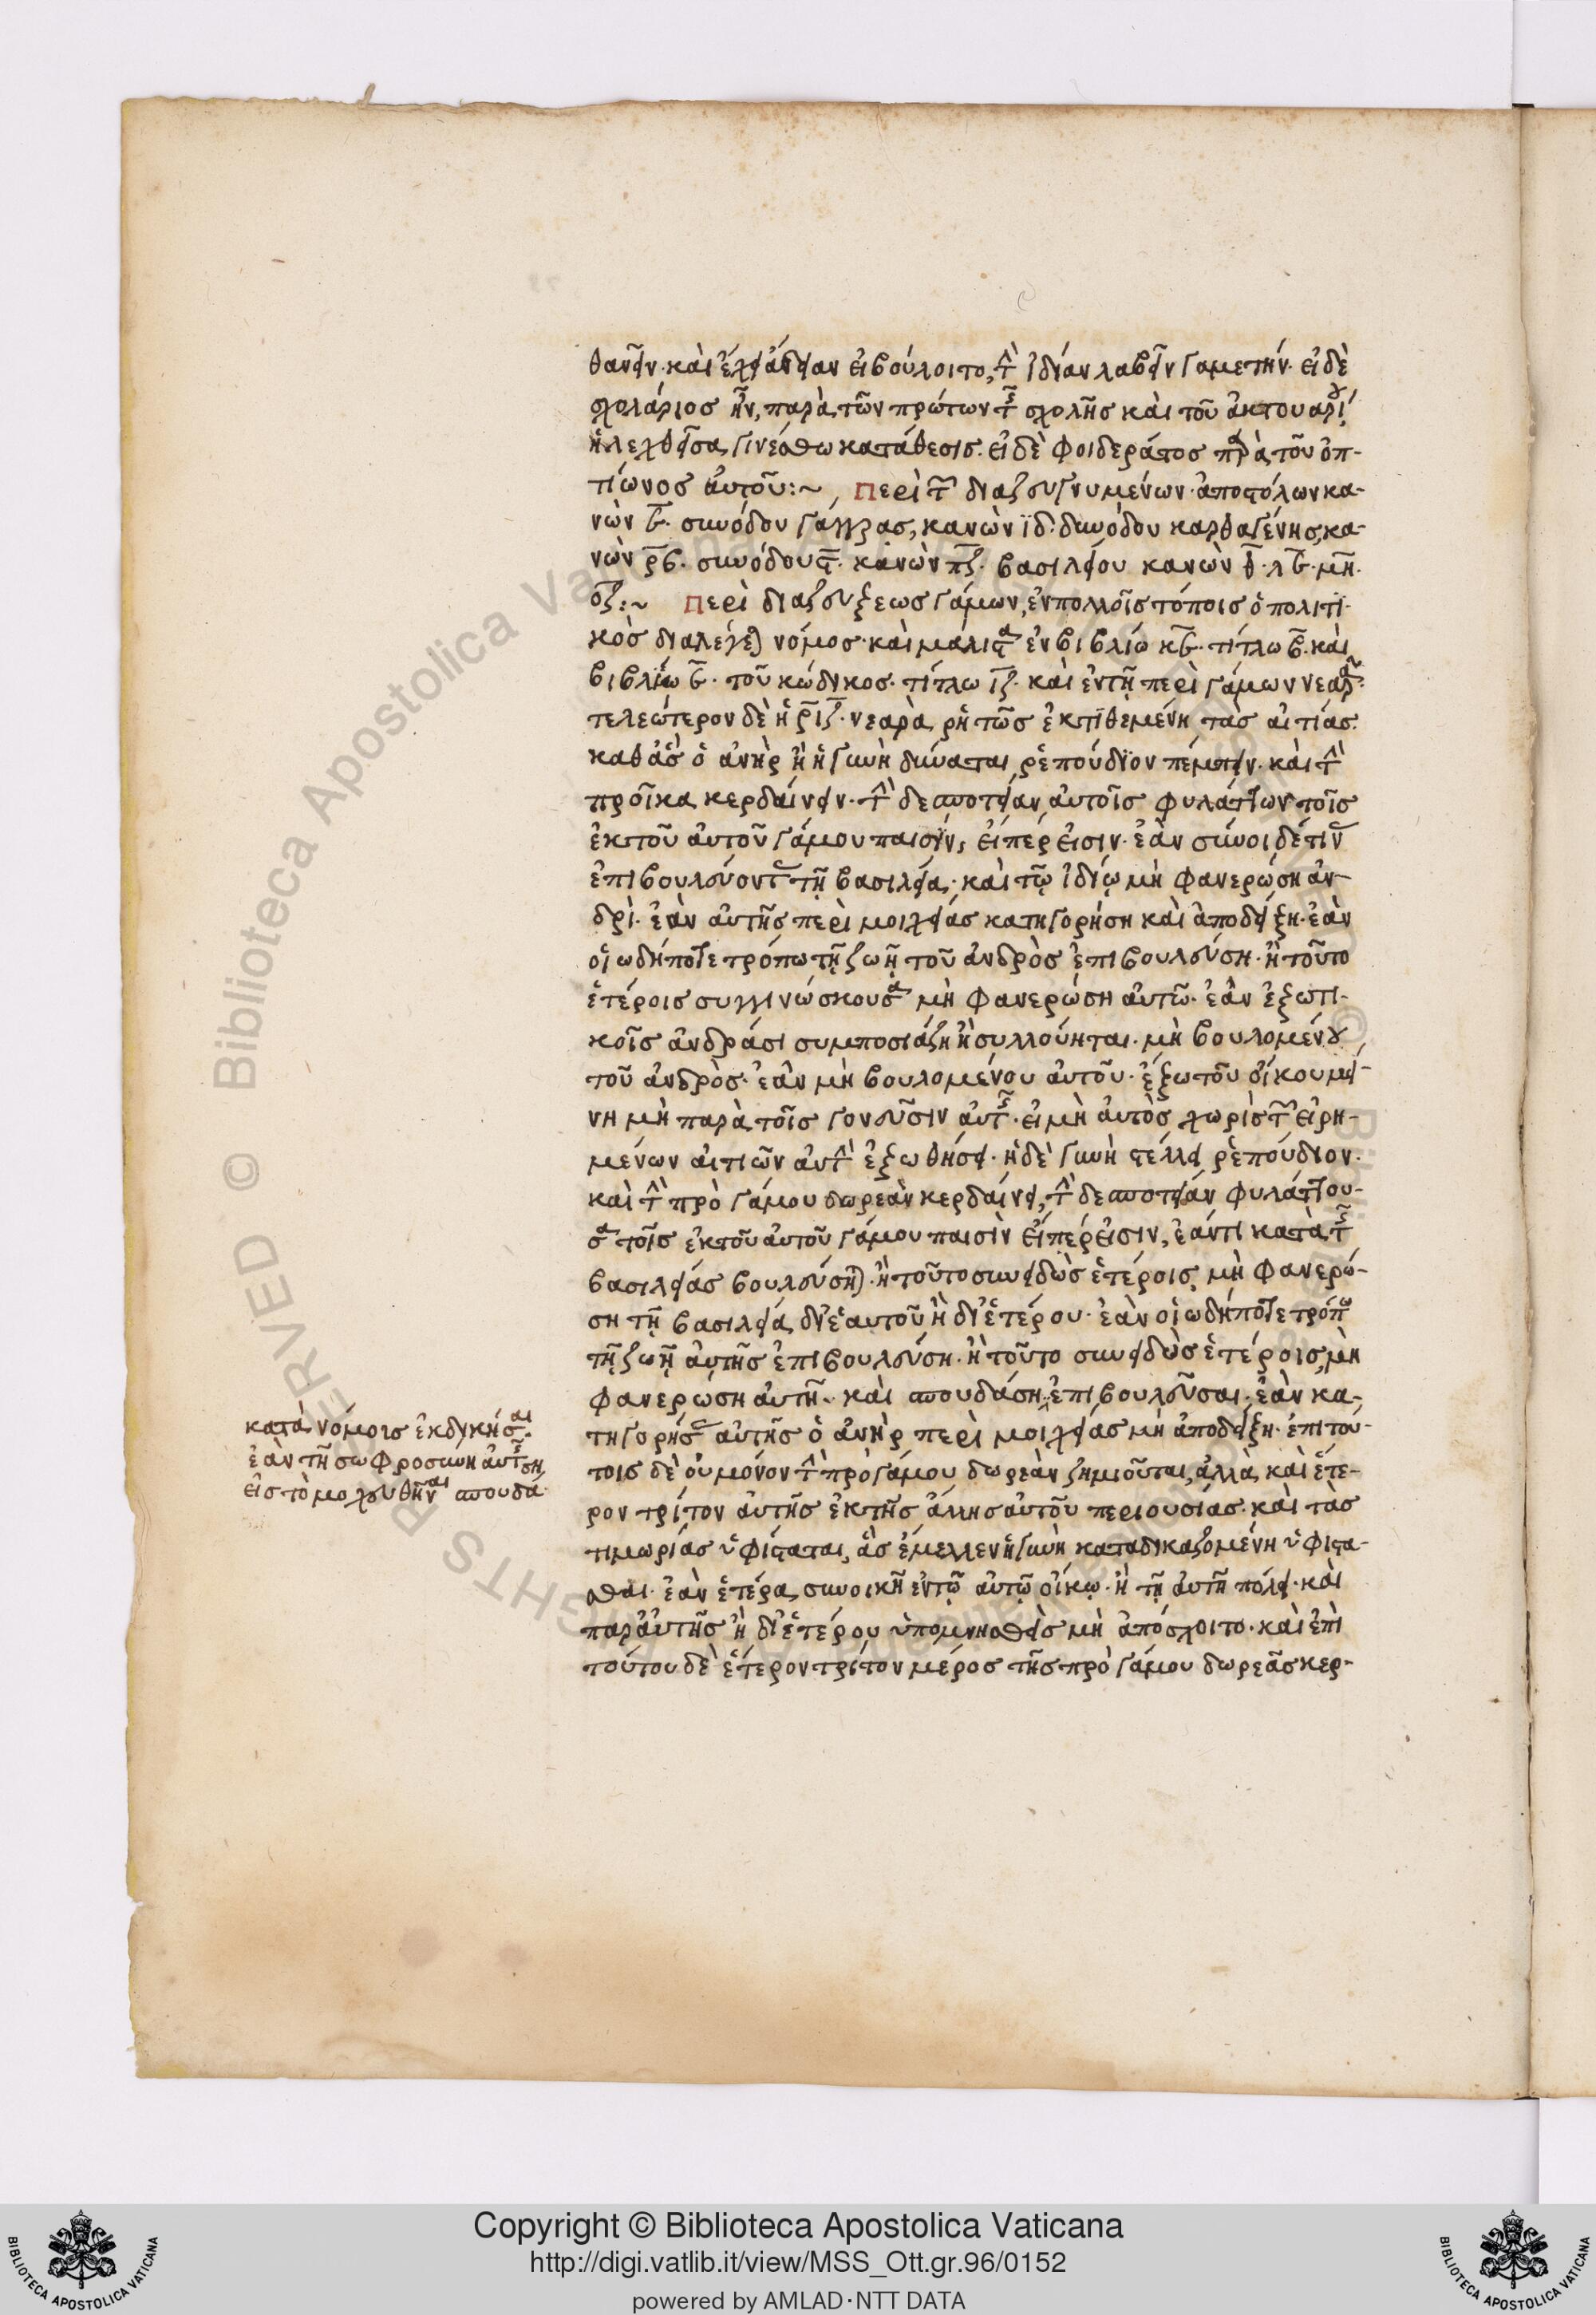 θανεῖν· καὶ ἐλθεῖν ἐὰν εἰ βούλοιτο, τὴν ἰδίαν λαβεῖν γαμετήν· εἰ δὲ
σχολάριος ἦν, παρὰ τῶν πρώτων τῆς σχολῆς καὶ τοῦ ἀκτουαρίου
ἡ λεχθεῖσα γινέσθω κατάθεσις· εἰ δὲ φοιδεράτος παρὰ τοῦ ὀπ-
τίωνος αὐτοῦ:~ Περὶ τῶν διαζευγνυμένων· ἀποστόλων κα-
νὼν ϛ̅· συνόδου Γάγγρας, κανὼν ιδ· συνόδου Καρθαγένης, κα-
νὼν ρ̅β· συνόδου ϛ̅· κανὼν π̅ζ· βασιλείου κανὼν θ̅· λ̅ϛ· μ̅η·
ο̅ζ:~ Περὶ διαζεύξεως γάμων, ἐν πολλοῖς τόποις ὁ πολιτι-
κὸς διαλέγεται νόμος· καὶ μάλιστα ἐν βιβλίω κ̅ϛ· τίτλω β̅· καὶ
βιβλίω ϛ̅· τοῦ κώδικος· τίτλω ι̅ζ· καὶ ἐν τῇ περὶ γάμων νεαρᾶ·
τελεώτερον δὲ ἡ ρ̅ι̅ζ· νεαρὰ ῥητῶς ἐκτιθεμένη τὰς αἰτίας·
καθ' ἃς ὁ ἀνὴρ ἢ ἡ γυνὴ δύναται ῥεπούδιον πέμπειν· καὶ τὴν
προῖκα κερδαίνειν· τὴν δεσποτείαν αὐτοῖς φυλάττων τοῖς
ἐκ τοῦ αὐτοῦ γάμου παισίν, εἴπερ εἰσίν· ἐὰν σύνοιδέ τισιν
ἐπιβουλεύοντας τῇ βασιλεία· καὶ τῷ ἰδίῳ μὴ φανερώση ἀν-
δρί· ἐὰν αὐτῆς περὶ μοιχείας κατηγορήση καὶ ἀποδείξη· ἐὰν
οἱωδήποτε τρόπω τῇ ζωῇ τοῦ ἀνδρὸς ἐπιβουλεύση· ἢ τοῦτο
ἑτέροις συγγινώσκουσα μὴ φανερώση αὐτῶ· ἐὰν ἐξωτι-
κοῖς ἀνδράσι συμποσιάζη ἢ συλλούηται· μὴ βουλομένου
τοῦ ἀνδρός· ἐὰν μὴ βουλομένου αὐτοῦ· ἔξω τοῦ οἴκου μεί-
νη μὴ παρὰ τοῖς γονεῦσιν αὐτῆς· εἰ μὴ αὐτὸς χωρὶς τῶν εἰρη-
μένων αἰτιῶν αὐτὴν ἐξωθήσει· ἡ δὲ γυνὴ στέλλει ῥεπούδιον·
καὶ τὴν πρὸ γάμου δωρεὰν κερδαίνει, τὴν δεσποτείαν φυλάττου-
σα τοῖς ἐκ τοῦ αὐτοῦ γάμου παισὶν εἴπερ εἰσίν, ἐάν τι κατὰ τῆς
βασιλείας βουλεύσηται· ἢ τοῦτο συνειδὼς ἑτέροις, μὴ φανερώ-
ση τῇ βασιλεία δι' ἑαυτοῦ ἢ δι' ἑτέρου· ἐὰν οἱωδήποτε τρόπω
τῇ ζωῇ αὐτῆς ἐπιβουλεύση· ἢ τοῦτο συνειδὼς ἑτέροις, μὴ
φανερώση αὐτῆ· καὶ σπουδάση ἐπιβουλεῦσαι· ἐὰν κα-
τηγορήσας αὐτῆς ὁ ἀνὴρ περὶ μοιχείας μὴ ἀποδείξη· ἐπὶ τού-
τοις δὲ οὐ μόνον τὴν πρὸ γάμου δωρεὰν ζημιοῦται, ἀλλὰ καὶ ἕτε-
ρον τρίτον αὐτῆς ἐκ τῆς ἄλλης αὐτοῦ περιουσίας· καὶ τὰς
τιμωρίας ὑφίσταται, ἃς ἔμελλεν ἡ γυνὴ καταδικαζομένη ὑφίστα-
σθαι· ἐὰν ἑτέρα συνοικῆ ἐν τῷ αὐτῷ οἴκῳ· ἢ τῇ αὐτῇ πόλει· καὶ
παρ' αὐτῆς ἢ δι' ἑτέρου ὑπομνησθεὶς μὴ ἀπόσχοιτο· καὶ ἐπὶ
τούτου δὲ ἕτερον τρίτον μέρος τῆς πρὸ γάμου δωρεᾶς κερ-
κατὰ νόμοις ἐκδικῆσαι·
ἐὰν τῆ σωφροσύνη αὐτῆς
εἰς τὸ μοιχευθῆναι σπουδά
Copyright © Biblioteca Apostolica Vaticana
http://digi.vatlib.it/view/MSS_Ott.gr.96/0152
powered by AMLAD·NTT DATA